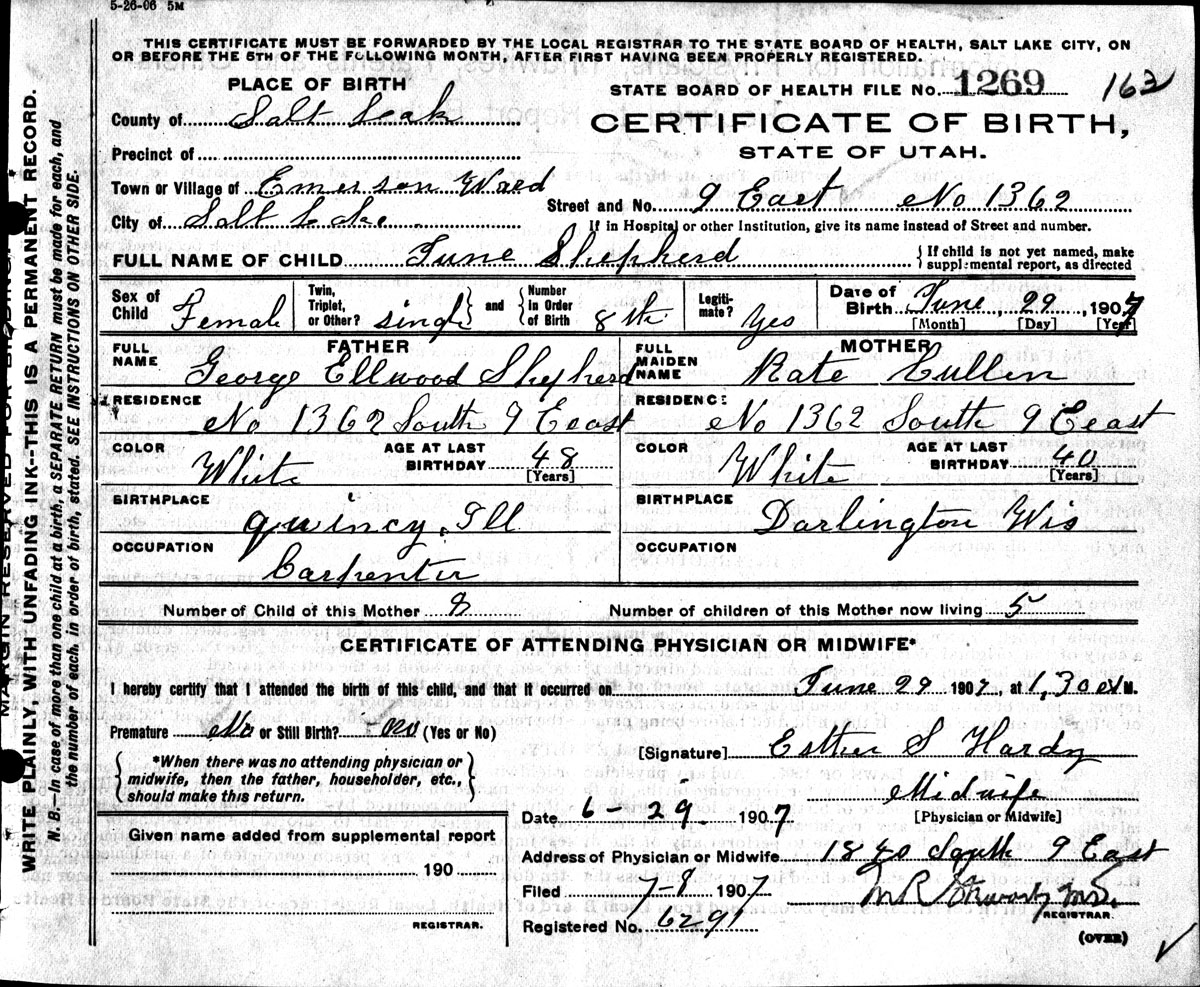 5-26-06 5M
THIS CERTIFICATE MUST BE FORWARDED BY THE LOCAL REGISTRAR TO THE STATE BOARD OF HEALTH, SALT LAKE CITY, ON
OR BEFORE THE 5TH OF THE FOLLOWING MONTH, AFTER FIRST HAVING BEEN PROPERLY REGISTERED.
PLACE OF BIRTH
STATE BOARD OF HEALTH FILE NO. 1269 163
County of Salt Leak
CERTIFICATE OF BIRTH,
Precinct of
STATE OF UTAH.
Town or Village of Emerson Ward
Street and No. 9 East No 1362
City of Salt Lake
If in Hospital or other Institution, give its name instead of Street and number.
FULL NAME OF CHILD June Shepherd
{ If child is not yet named, make
supplemental report, as directed
Sex of Child Female
Twin, Triplet, or Other? single
and Number in Order of Birth 8th
Legitimate? Yes
Date of Birth June, 29, 1907
[Month] [Day] [Year]
FATHER
FULL NAME George Ellwood Shepherd
RESIDENCE No 1362 South 9 Eeast
COLOR White
AGE AT LAST BIRTHDAY 48
[Years]
BIRTHPLACE quincy, Ill
OCCUPATION Carpenter
MOTHER
FULL MAIDEN NAME Kate Cullen
RESIDENCE No 1362 South 9 Eeast
COLOR White
AGE AT LAST BIRTHDAY 40
[Years]
BIRTHPLACE Darlington Wis
OCCUPATION
Number of Child of this Mother 8 Number of children of this Mother now living 5
CERTIFICATE OF ATTENDING PHYSICIAN OR MIDWIFE*
I hereby certify that I attended the birth of this child, and that it occurred on June 29 1907, at 1,30 a M.
Premature No or Still Birth? no (Yes or No)
{ *When there was no attending physician or
midwife, then the father, householder, etc.,
should make this return. }
[Signature] Esther S Hardy
Midwife
[Physician or Midwife]
Date 6-29. 1907
Given name added from supplemental report
190
REGISTRAR.
Address of Physician or Midwife 1840 South 9 East
Filed 7-8 1907
M.D.
REGISTRAR.
Registered No. 6291
(OVER)
MARGIN RESERVED FOR BINDING.
WRITE PLAINLY, WITH UNFADING INK--THIS IS A PERMANENT RECORD.
N. B.—In case of more than one child at a birth, a SEPARATE RETURN must be made for each, and
the number of each, in order of birth, stated. SEE INSTRUCTIONS ON OTHER SIDE.